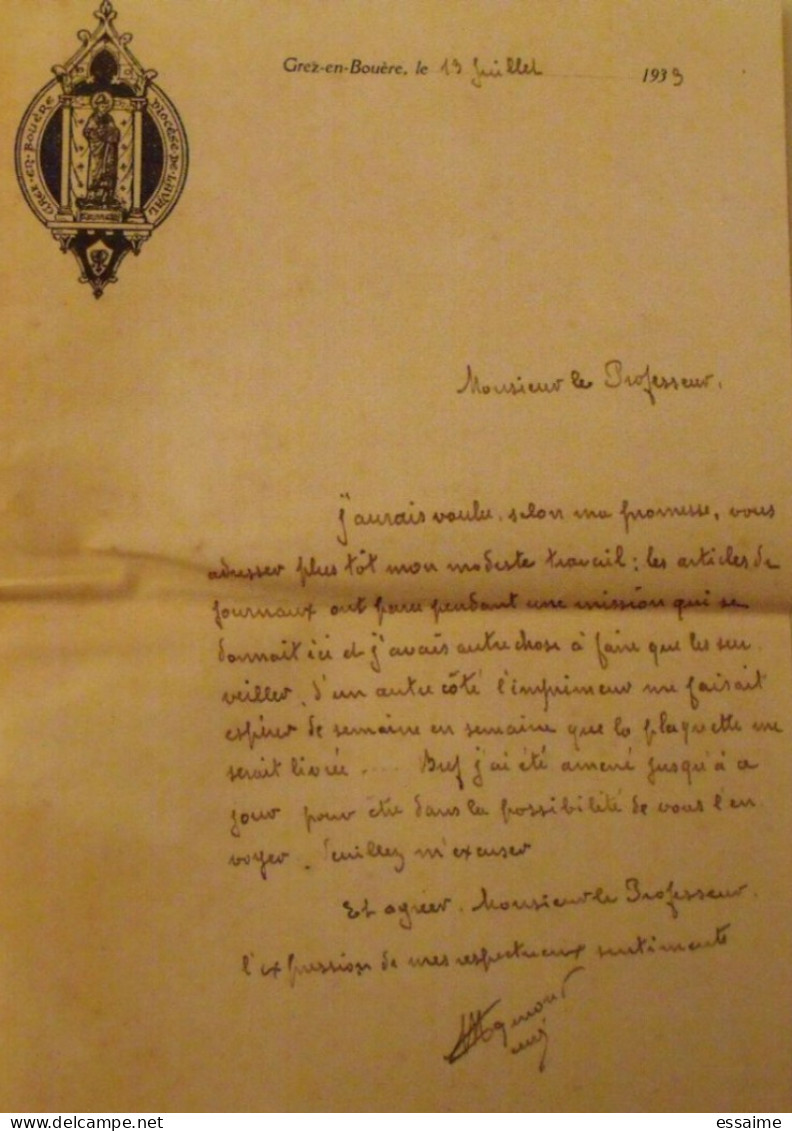 GREZ-EN-BOUÈRE DIOCÈSE-DE-LAVAL
Grez-en-Bouère, le 13 Juillet 1933
Monsieur le Professeur,
J'aurais voulu, selon ma promesse, vous
adresser plus tôt mon modeste travail : les articles de
journaux ont paru pendant une mission qui se
donnait ici et j'avais autre chose à faire que les sur
veiller. D'un autre côté l'imprimeur me faisait
espérer de semaine en semaine que la plaquette me
serait livrée .... Bref j'ai été amené jusqu'à ce
jour pour être dans la possibilité de vous l'en
voyer. Veuillez m'excuser
Et agréer, Monsieur le Professeur,
l'expression de mes respectueux sentiments
delcampe.net
essaime